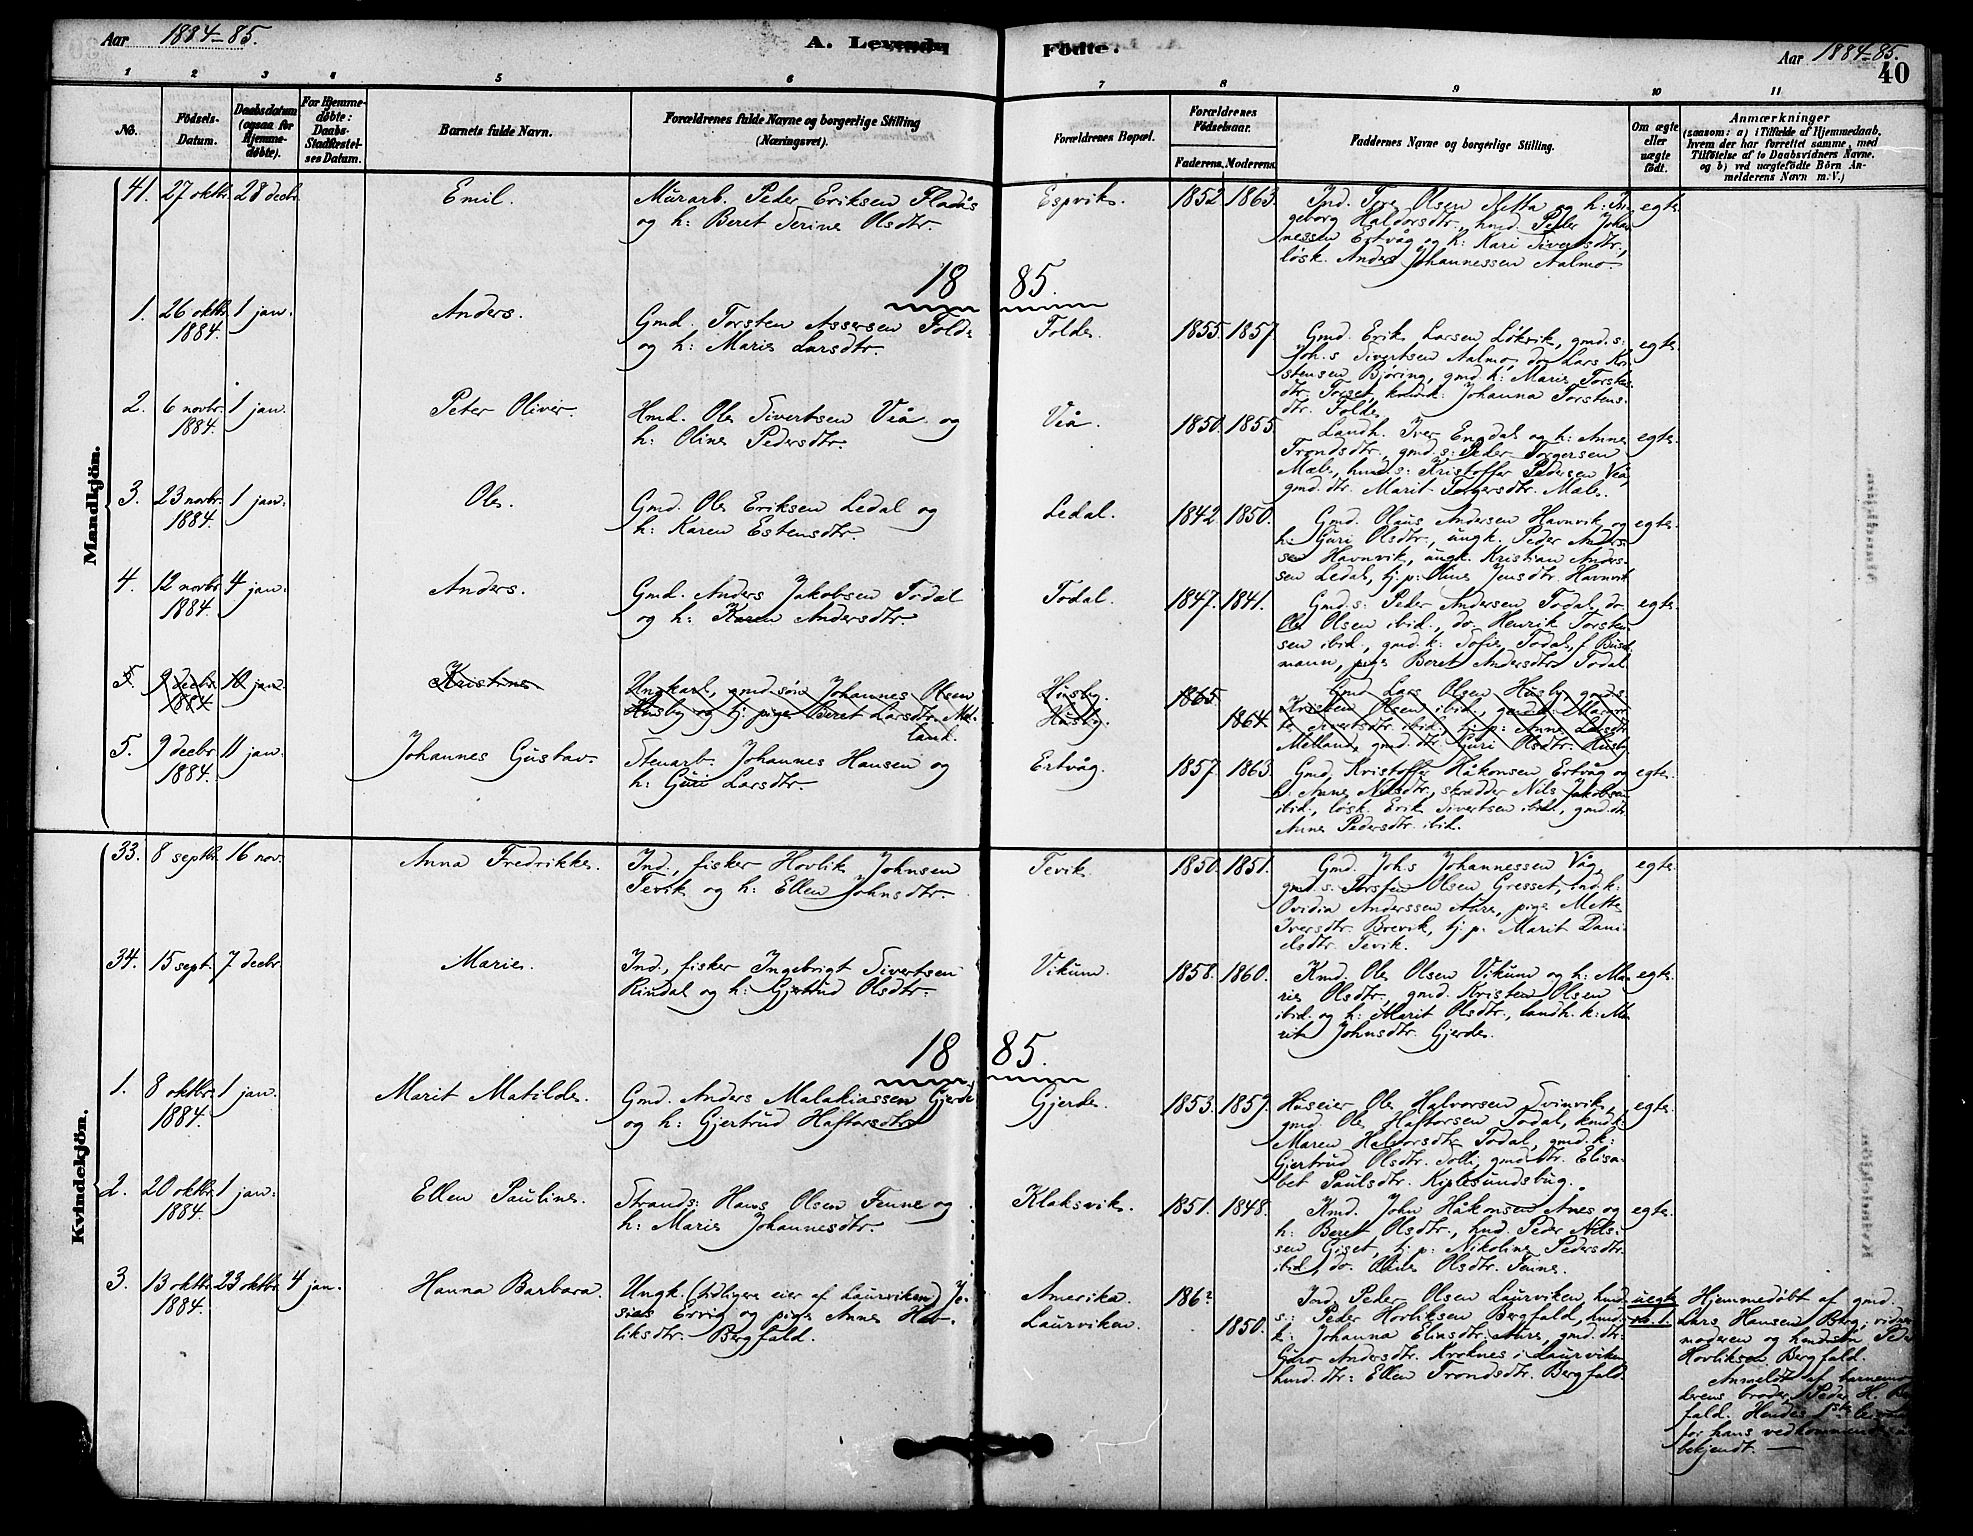 Aar 1884-85.
A. Levende Fødte.
Aar 1884-85.
40
1 2 3 4 5 6 7 8 9 10 11
No.
Fødsels-
Datum.
Daabsdatum
(ogsaa for
Hjemme-
døbte).
For Hjemme-
døbte:
Daabs-
Stadfæstel-
ses Datum.
Barnets fulde Navn.
Forældrenes fulde Navne og borgerlige Stilling
(Næringsvei).
Forældrenes Bopæl.
Forældrenes
Fødselsaar.
Faderens. Moderens.
Faddernes Navne og borgerlige Stilling.
Om ægte
eller
uægte
født.
Anmærkninger
(saasom: a) i Tilfælde af Hjemmedaab,
hvem der har forrettet samme, med
Tilføielse af to Daabsvidners Navne.
og b) ved uægtefødte Børn An-
melderens Navn m. V.)
Mandkjön.
41. 27 oktbr. 28 decbr. Emil.
Murarb. Peder Eriksen Fladås
og h: Beret Serine Olsdtr.
Espvik. 1852. 1863.
Ind. Iver Olsen Sletta og h: In-
geborg Haldorsdtr., hmd. Peder Johan-
nessen Ertvåg og h: Kari Sivertsdtr.,
løsk. Anders Johannessen Aalmo.
egte.
1885.
1. 26 oktbr. 1 jan. Anders.
1884.
Gmd. Torsten Assersen Folde
og h: Marie Larsdtr.
Folde. 1855. 1857.
Gmd. Erik Larsen Løkvik, gmd.s:
Joh.s Sivertsen Aalmo, do Lars Kri-
stensen Bjøring, gmd. k: Marie Torstens
dtr. Torset, Johanna Torstens-
dtr. Folde.
egte.
2. 6 novbr. 1 jan. Peter Oliver.
1884.
Hmd. Ole Sivertsen Viå og
h: Oline Pedersdtr.
Viå. 1850. 1855.
Landh. Iver Engdal og h: Anne
Trondsdtr., gmd. s: Peder Torgersen
Mæle, hmd.s: Kristoffer Pedersen Viå,
gmd. dtr. Marit Torgersdtr. Mæle.
egte.
3. 23 novbr. 1 jan. Ole.
1884.
Gmd. Ole Eriksen Ledal og
h: Karen Estensdtr.
Ledal. 1842. 1850.
Gmd. Olaus Andersen Havnvik og
h: Guri Olsdtr., ungk. Peder Anders-
sen Havnvik, ungk. Kristian Anders-
sen Ledal, tj. p: Oline Jensdtr. Havnvik
egte.
4. 12 novbr. 4 jan. Anders.
1884.
Gmd. Anders Jakobsen Todal
og h: Karen Andersdtr.
Todal. 1847. 1841.
Gmd.s: Peder Andersen Todal, do.
Ole Olsen ibid., do. Henrik Torsten-
sen ibid., gmd. k: Sofie Todal, f. Bus
mann, pige Beret Andersdtr. Todal.
egte.
5. 9 decbr. jan. Kristine
1884
Ungkarl, gmd søn Johannes Olsen
Husby og tj. pige Beret Larsdtr. Mel-
land.
Husby. 1865.
Husby. 1864.
Gmd Lars Olsen Husby, gmd s:
Kristen Olsen ibid., gmd. k: 
Sivertsdtr. ibid., tj. p: Anne Larsdtr.
Melland, gmd. dtr. Guri Olsdtr. Husby
5. 9 decbr. 11 jan. Johannes Gustav.
1884.
Stenarb. Johannes Hansen og
h: Guri Larsdtr.
Ertvåg. 1857. 1863.
Gmd. Kristoffer Håkonsen Ertvåg og
h: Anne Nilsdtr., skrædder Nils Jakobsen
ibid., løsk. Erik Sivertsen ibid., gmd. dtr.
Anne Pedersdtr. ibid.
egte.
Kvindekjön.
33. 8 septbr. 16 nov. Anna Fredrikke.
Ind., fisker Hovlik Johnsen
Tevik og h: Ellen Johnsdtr.
Tevik. 1850. 1851.
Gmd. Joh.s Johannessen Våg,
gmd. s. Torsten Olsen Gresset, ind. k:
Ovidia Anderssen Aure, pige Mette
Iversdtr. Brevik, tj. p: Marit Dani-
elsdtr. Tevik.
egte.
34. 15 sept. 7 decbr. Marie.
Ind., fisker Ingebrigt Sivertsen
Rindal og h: Gjertrud Olsdtr.
Vikum. 1858. 1860.
Kmd. Ole Olsen Vikum og h: Ma-
rie Olsdtr., gmd. Kristen Olsen
ibid. og h: Marit Olsdtr., landh. k: Ma-
rit Johnsdtr. Gjerde.
egte.
1885.
1. 8 oktbr. 1 jan. Marit Matilde.
1884.
Gmd. Anders Malakiassen Gjerde
og h: Gjertrud Haftorsdtr.
Gjerde. 1853. 1857.
Huseier Ole Halvorsen Svinvik,
gmd. Ole Haftorsen Todal, kmd. k:
Maren Halvorsdtr. Todal, gmd. k:
Gjertrud Olsdtr. Tolli, gmd. dtr. Elisa-
bet Paulsdtr. Kiplesundsbug.
egte.
2. 20 oktbr. 1 jan. Ellen Pauline.
1884.
Strands: Hans Olsen Fenne og
h: Marie Johannesdtr.
Klaksvik. 1851. 1848.
Kmd. John Håkonsen Anes og
h: Beret Olsdtr., hmd. Peder Nils-
sen Giset, tj. p: Nikoline Pedersdtr.
ibid., do. Oline Olsdtr. Fenne.
egte.
3. 13 oktbr. 23 oktbr. 4 jan. Hanna Barbara.
1884.
Ungk. (tidligere eier af Laurviken) Jo-
sias Ervig og pige Anne Hov-
liksdtr. Bergfald.
Amerika. 186?
Laurviken. 1850.
Ind. Peder Olsen Laurviken, hmd
s: Peder Hovliksen Bergfald, hmd.
k: Johanna Eliasdtr. Aure, gmd. dtr.
Guro Andersdtr. Kroknes i Laurviken
hmd. dtr: Ellen Trondsdtr. Bergfald.
uegte
no. 1.
Hjemmedøbt af gmd.
Lars Hansen Berg; vidner
moderen og Peder
Hovliksen Bergfald.
Anmeldt af barnemo-
derens broder Peder H. Berg-
fald. Hendes 1ste leierm.
for hans vedkommende
bekjendt. —